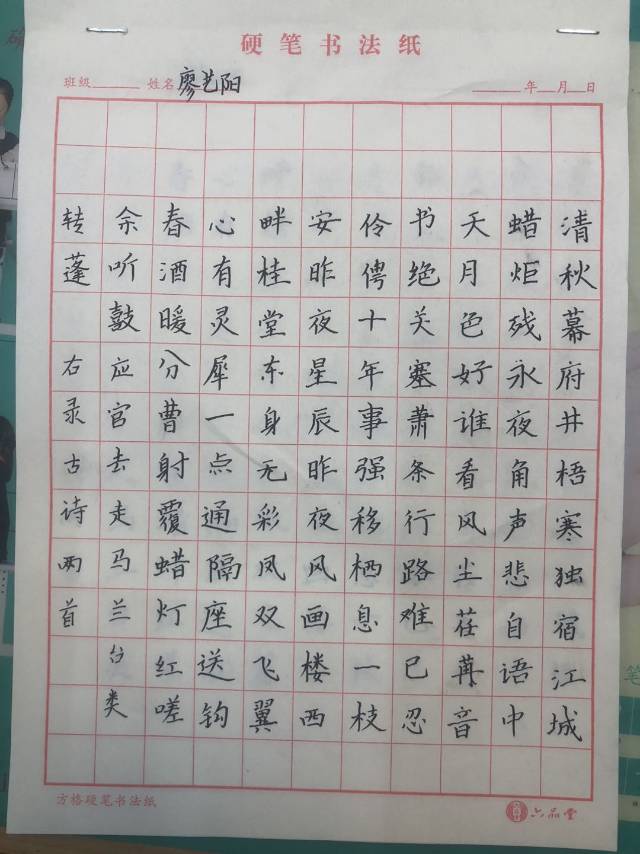 硬笔书法纸
班级 姓名 廖艺阳 年 月 日
清秋幕府井梧寒独宿江城
蜡炬残永夜角声悲自语中
天月色好谁看风尘荏苒音
书绝关塞萧条行路难已忍
伶俜十年事强移栖息一枝
安昨夜星辰昨夜风画楼西
畔桂堂东身无彩凤双飞翼
心有灵犀一点通隔座送钩
春酒暖分曹射覆蜡灯红嗟
余听鼓应官去走马兰台类
转蓬 右录古诗两首
方格硬笔书法纸
六品堂